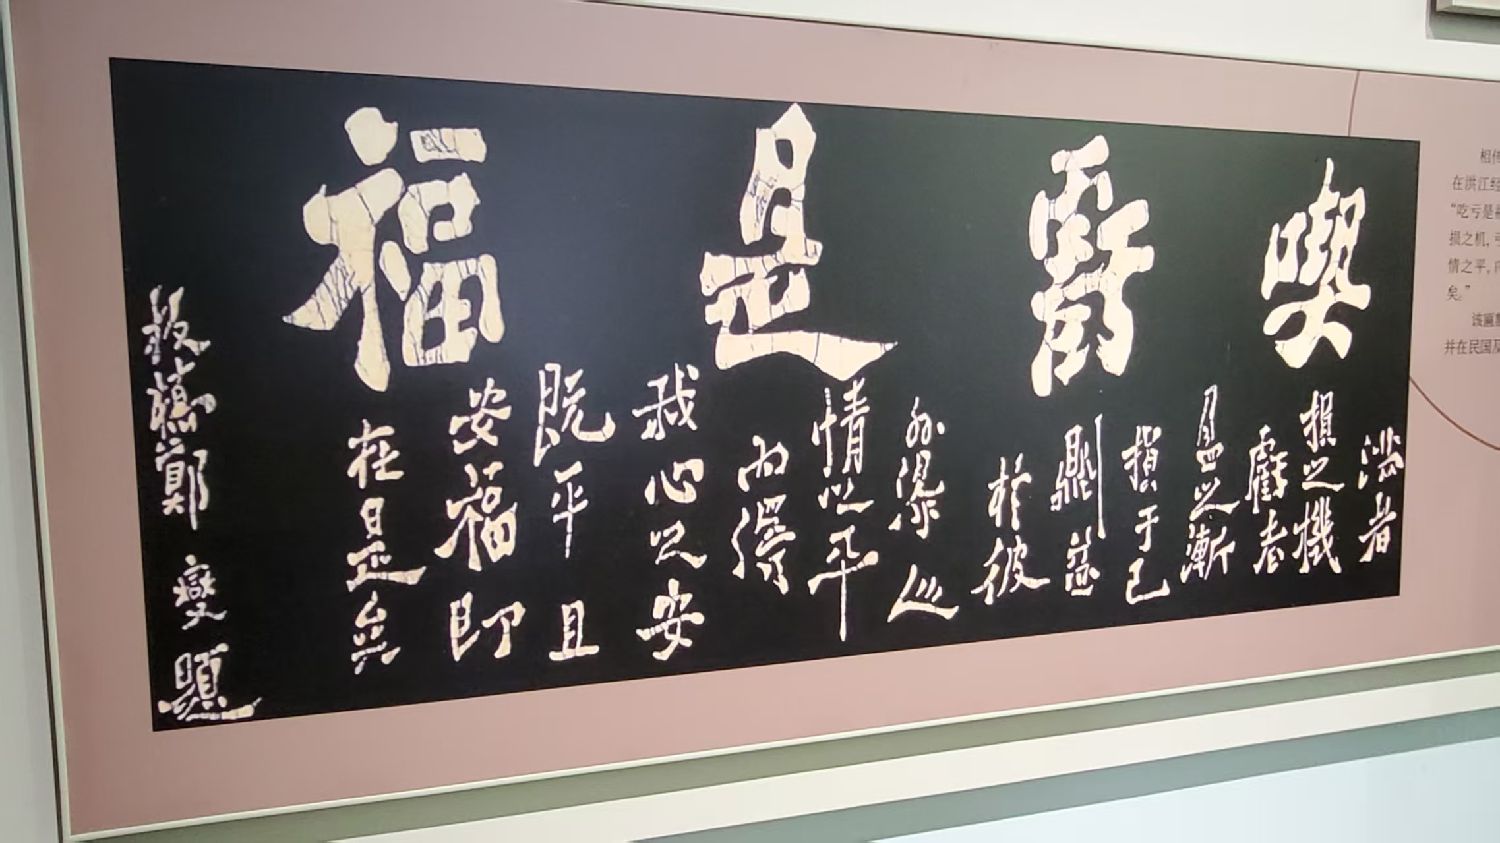 喫虧是福
滿者
損之機
虧者
盈之漸
損于己
則益
於彼
外得人
情之平
內得
我心之安
既平且
安福即
在是矣
板橋鄭燮題
相传
在洪江经
“吃亏是福
损之机，亏
情之平，内
矣。”
该匾
并在民国及